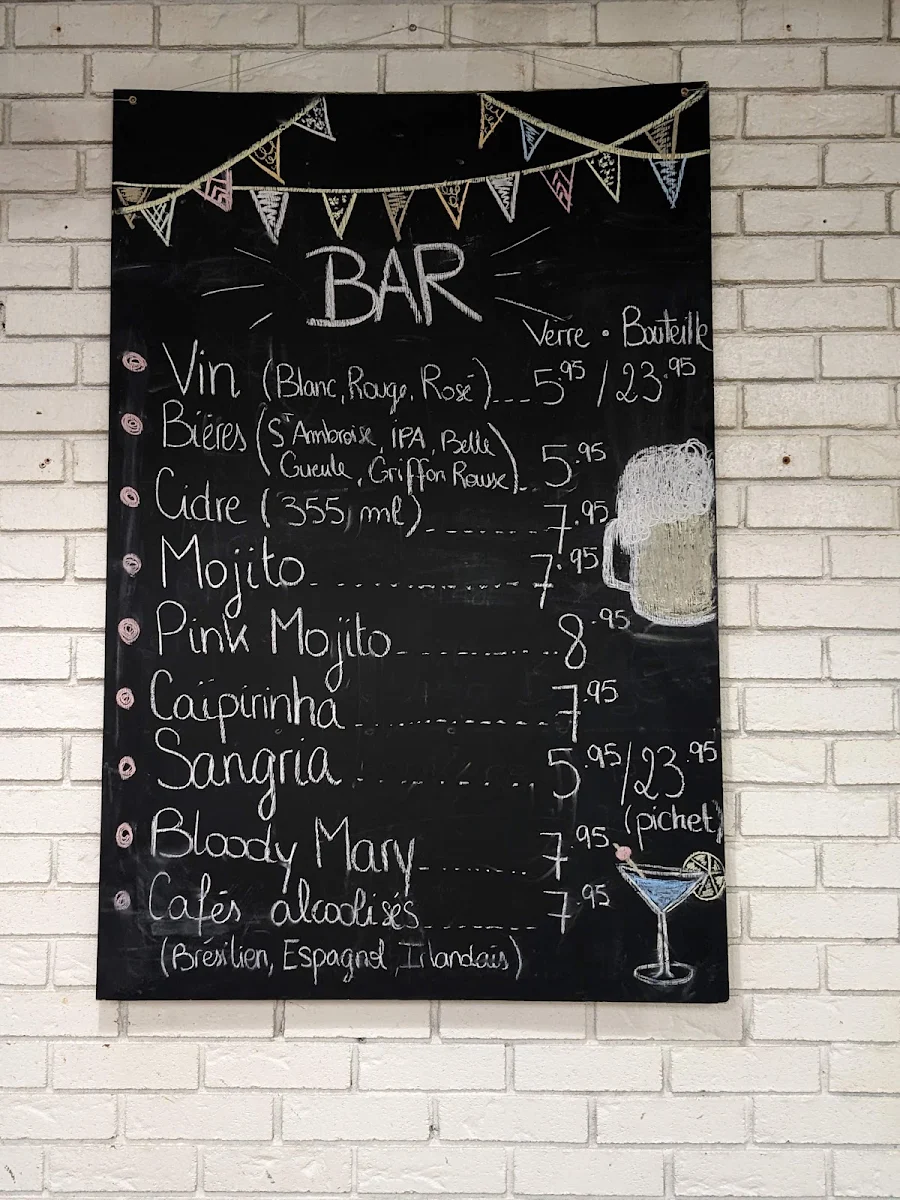 BAR
Verre • Bouteille
Vin (Blanc, Rouge, Rosé)....5.95 / 23.95
Bières (St Ambroise, IPA, Belle
Gueule, Griffon Rousse)..5.95
Cidre (355 ml)........7.95
Mojito..............7.95
Pink Mojito...........8.95
Caïpirinha............7.95
Sangria............5.95/23.95
(pichet)
Bloody Mary.........7.95
Cafés alcoolisés.........7.95
(Brésilien, Espagnol, Irlandais)